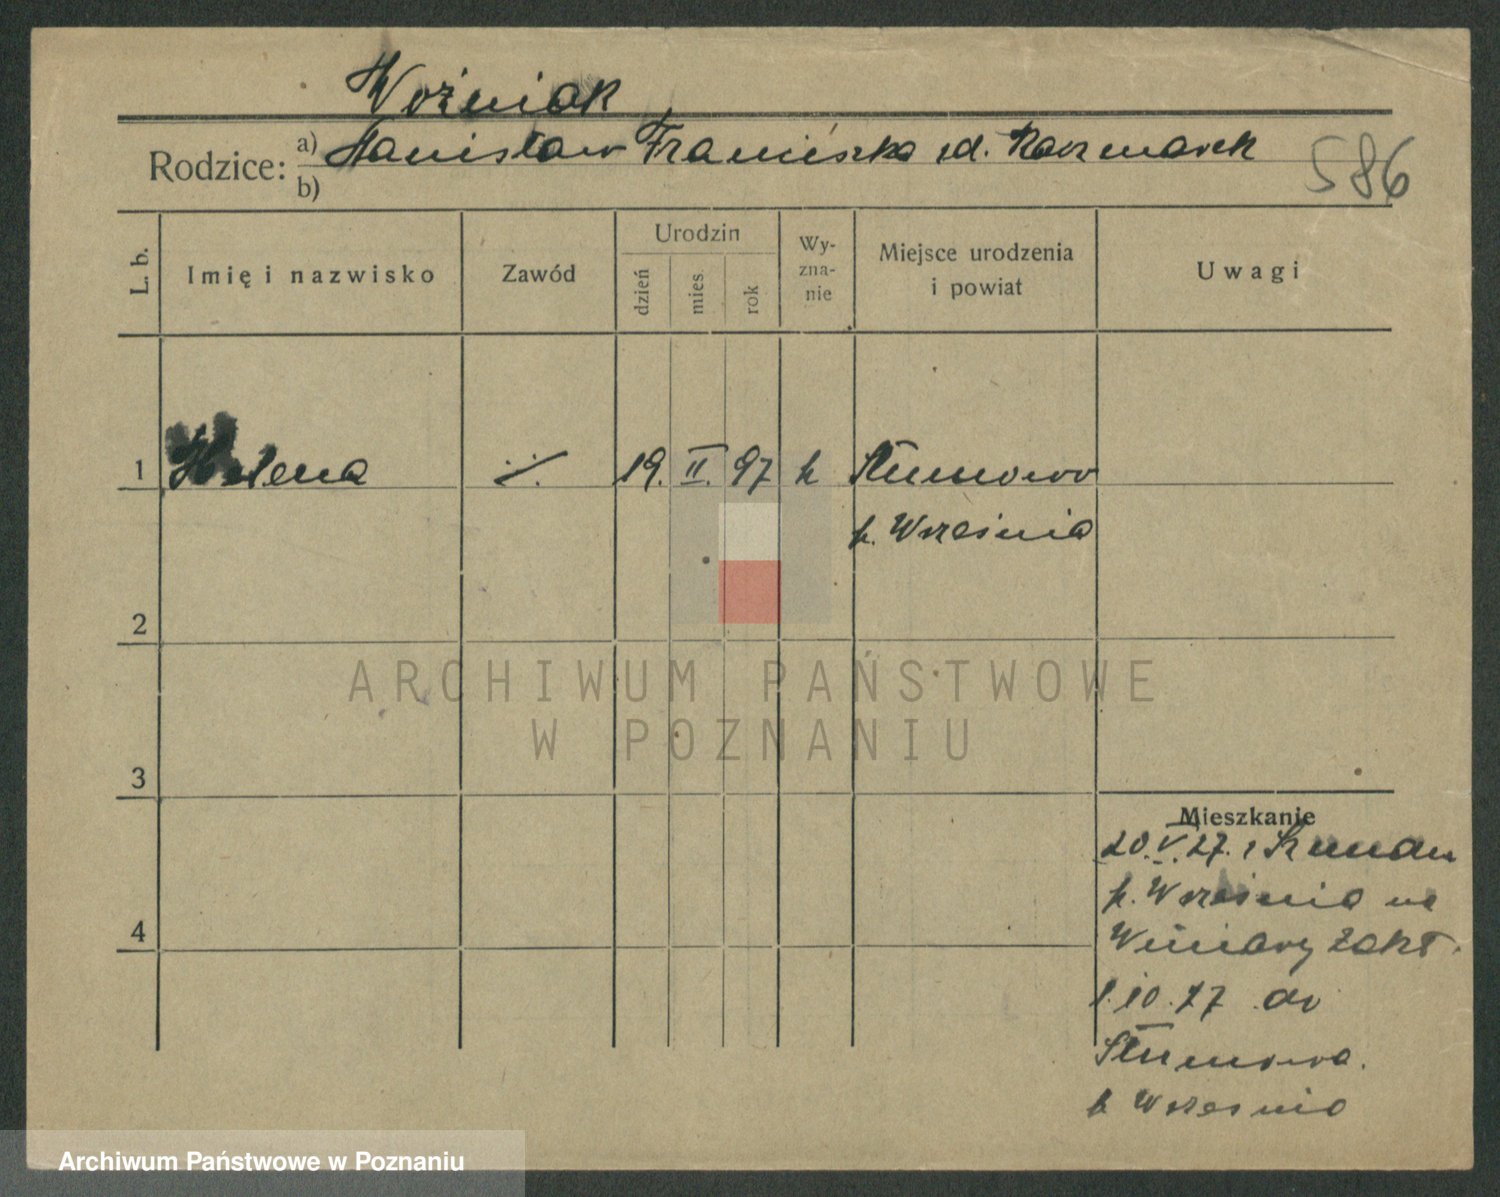 Woźniak
Rodzice: a) Stanisław Franciszka zd. Kaczmarek
b)
586
L. b.
Imię i nazwisko
Zawód
Urodzin
dzień
mies
rok
Wy-
zna-
nie
Miejsce urodzenia
i powiat
Uwagi
1 Helena ./. 19. II. 97 k
p. Września
2
3
4
Mieszkanie
20.V.27. z
p. Września na
Winiary Zakł.
1.10.27 do
p Września
ARCHIWUM PAŃSTWOWE
W POZNANIU
Archiwum Państwowe w Poznaniu